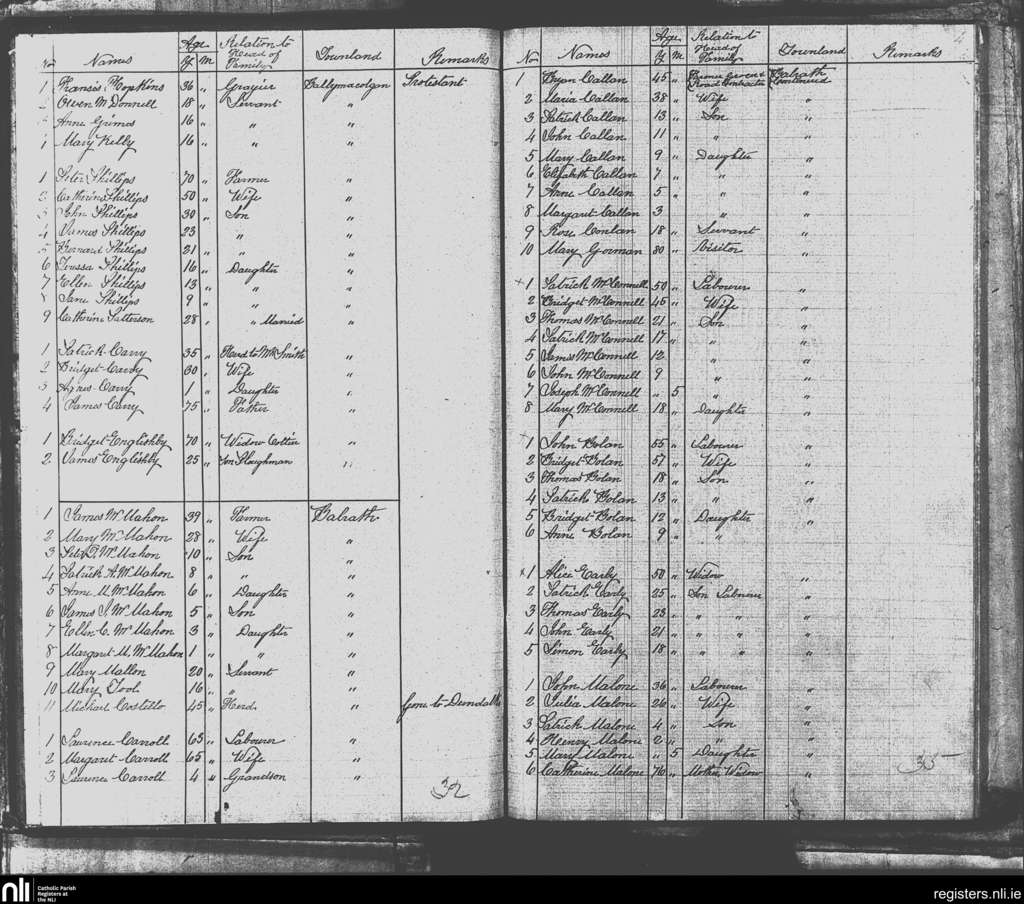 No Names Age Y M Relation to Head of Family Townland Remarks
1 Francis Hopkins 36 " Grazier Ballymacolgan Protestant
2 Owen McDonnell 18 " Servant "
3 Anne Grimes 16 " " "
1 Mary Kelly 16 " " "
1 Peter Phillips 70 " Farmer "
2 Catherine Phillips 50 " Wife "
3 John Phillips 30 " Son "
4 James Phillips 23 " "
5 Bernard Phillips 21 " " "
6 Phillips 16 " Daughter "
7 Ellen Phillips 13 " " "
8 Jane Phillips 9 " " "
9 Catherine Patterson 28 " " Married "
1 Patrick Carry 35 " Herd to Mr Smith "
2 Bridget Carry 30 " Wife "
3 Agnes Carry 1 " Daughter "
4 James Carry 75 " Father "
1 Bridget Englishby 70 " Widow Cottier "
2 James Englishby 25 " Son Ploughman "
1 James McMahon 39 " Farmer Balrath
2 Mary McMahon 28 " Wife "
3 Peter P. McMahon 10 " Son "
4 Patrick A. McMahon 8 " " "
5 Anne M. McMahon 6 " Daughter "
6 James J. McMahon 5 " Son "
7 Ellen C. McMahon 3 " Daughter "
8 Margaret M. McMahon 1 " " "
9 Mary Mallon 20 " Servant "
10 Mary Tool 16 " " "
11 Michael Costillo 45 " Herd " Gone to Dundalk
1 Laurence Carroll 65 " Labourer "
2 Margaret Carroll 65 " Wife "
3 Laurence Carroll 4 " Grandson "
32
4
No Names Age Y M Relation to Head of Family Townland Remarks
1 Bryan Callan 45 " Farmer Grocer & Road Contractor Balrath Continued
2 Maria Callan 38 " Wife "
3 Patrick Callan 13 " Son "
4 John Callan 11 " " "
5 Mary Callan 9 " Daughter "
6 Elizabeth Callan 7 " " "
7 Anne Callan 5 " " "
8 Margaret Callan 3 " "
9 Rose Conlan 18 " Servant "
10 Mary Gorman 80 " Visitor "
+ 1 Patrick McConnell 50 " Labourer "
2 Bridget McConnell 45 " Wife "
3 Thomas McConnell 21 " Son "
4 Patrick McConnell 17 " " "
5 James McConnell 12 " " "
6 John McConnell 9 " "
7 Joseph McConnell " 5 " "
8 Mary McConnell 18 " Daughter "
1 John Bolan 55 " Labourer "
2 Bridget Bolan 57 " Wife "
3 Thomas Bolan 18 " Son "
4 Patrick Bolan 13 " " "
5 Bridget Bolan 12 " Daughter "
6 Anne Bolan 9 " " "
x 1 Alice Early 50 " Widow "
2 Patrick Early 25 " Son Labourer "
3 Thomas Early 23 " " " "
4 John Early 21 " " " "
5 Simon Early 18 " " " "
1 John Malone 36 " Labourer "
2 Julia Malone 26 " Wife "
3 Patrick Malone 4 " Son "
4 Henry Malone 2 " " "
5 Mary Malone " 5 Daughter "
6 Catherine Malone 76 " Mother, Widow "
35
nli
Catholic Parish Registers at the NLI
registers.nli.ie